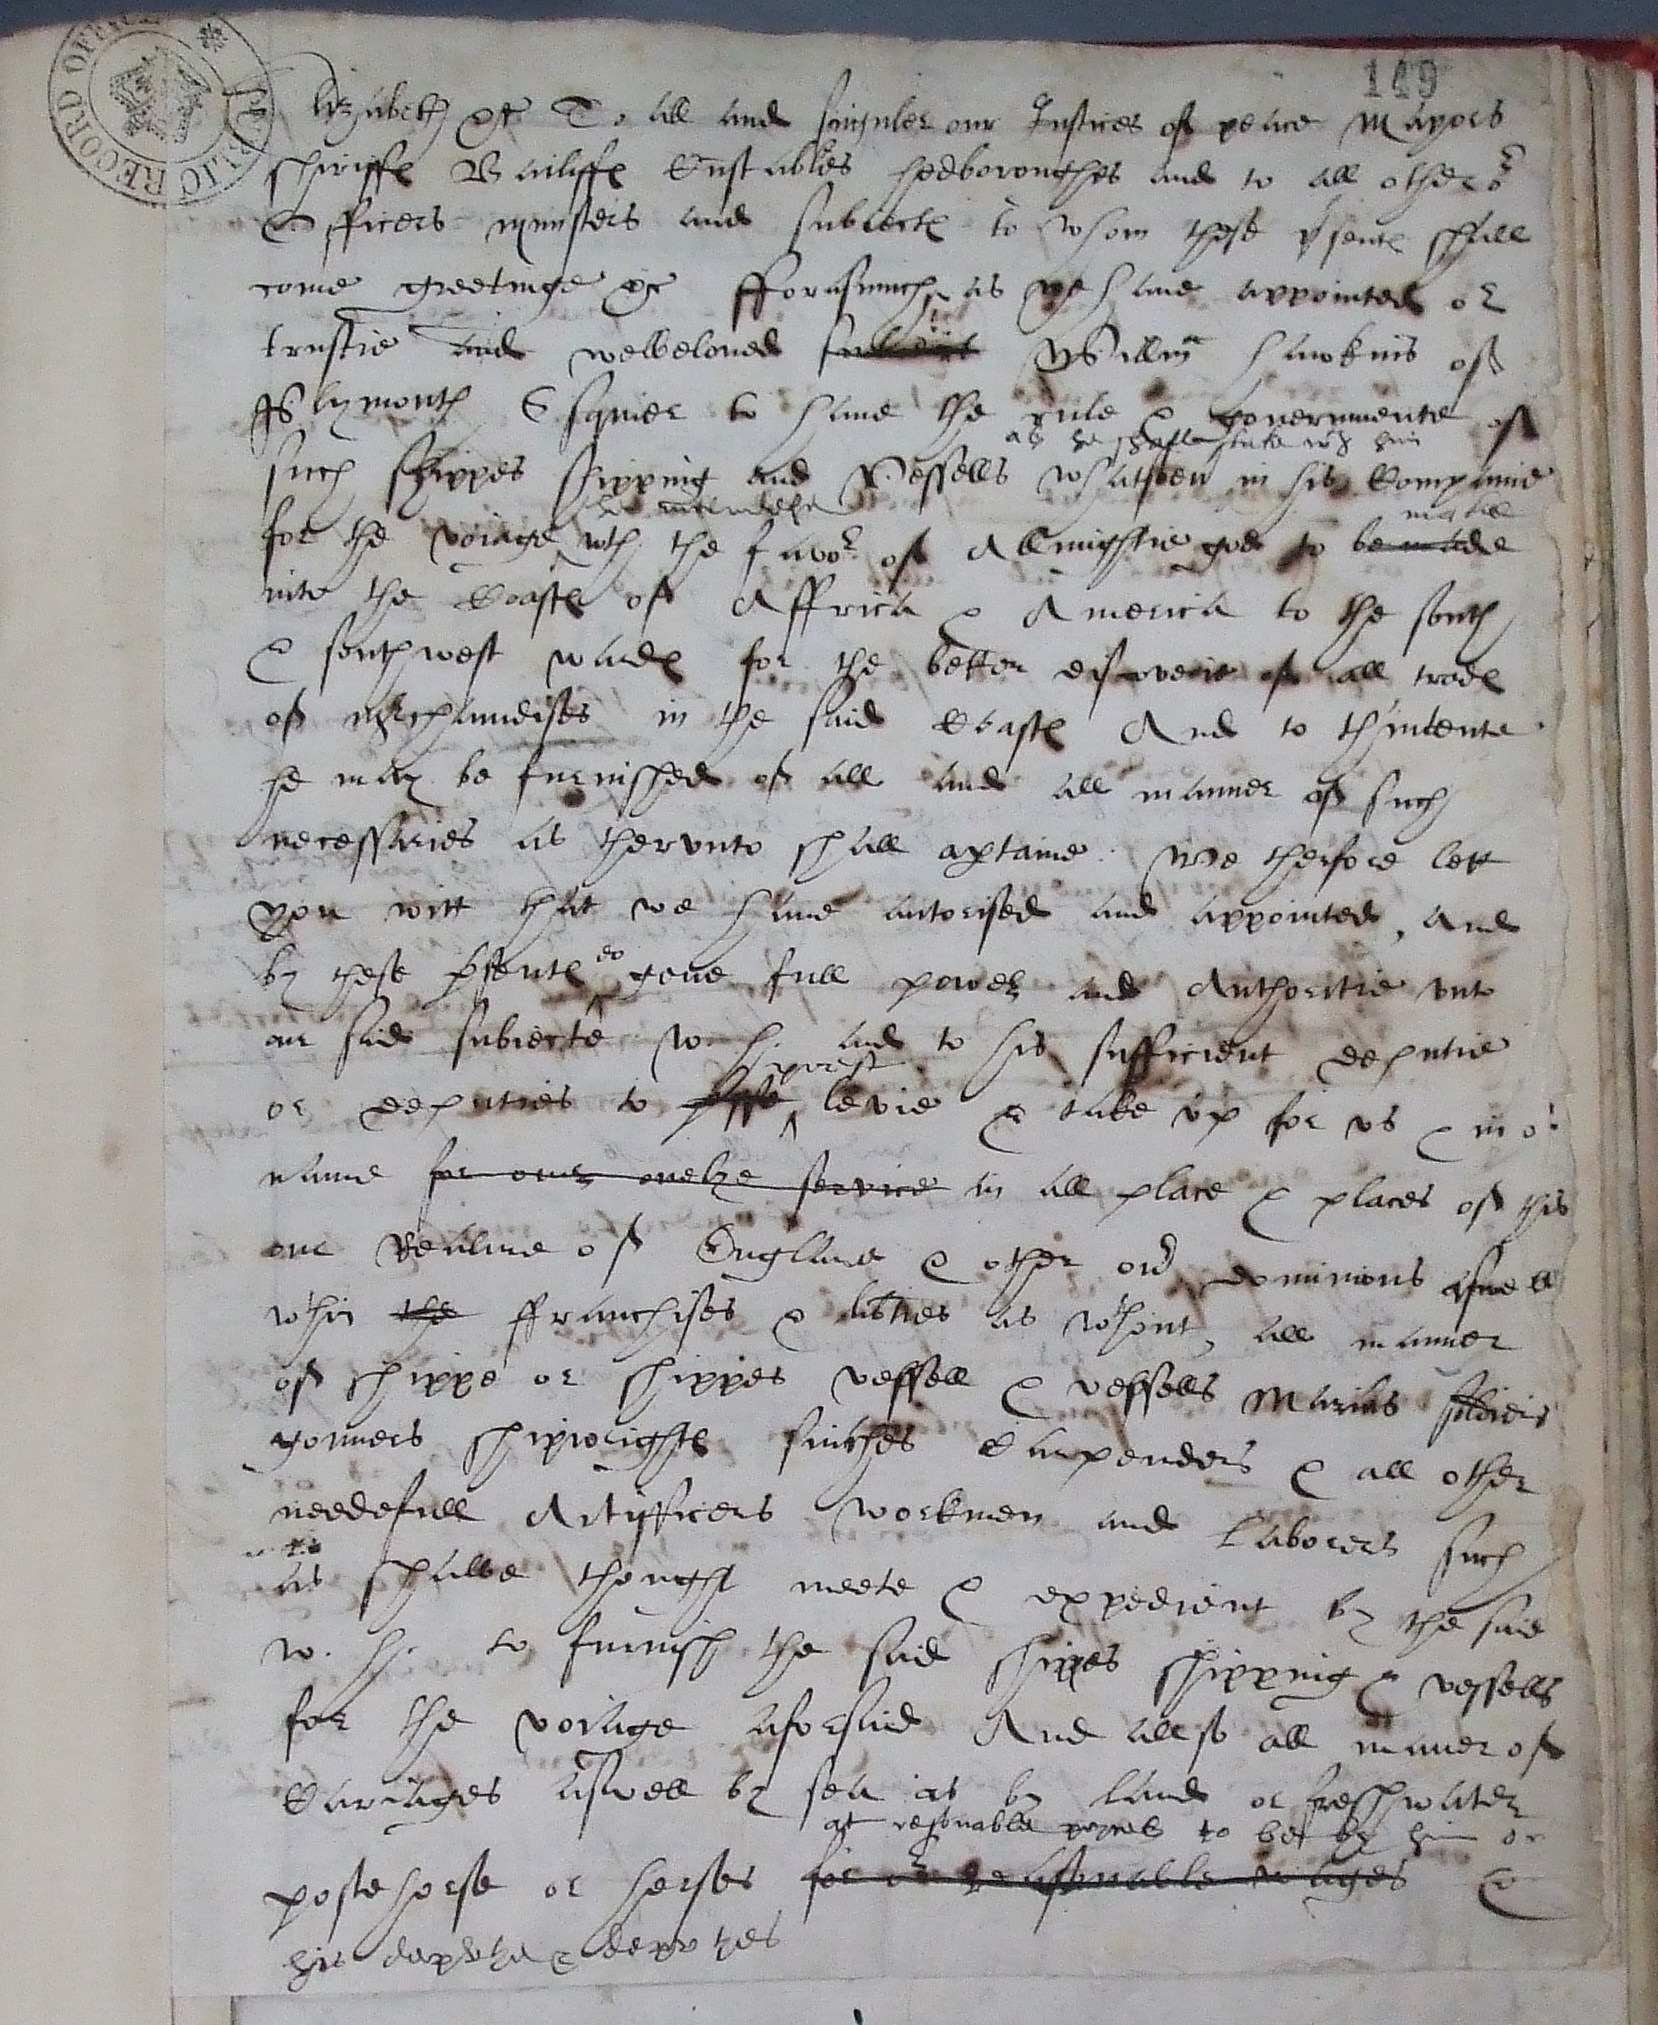 149
PUBLIC RECORD OFFICE
Elizabeth &c To all and singuler our Justices of peace Mayors
shiriffes Bailiffes Cunstables hedboroughes and to all other or
Officers ministers and subiectes to whom these psentes shall
come greetinge &c fforasmuch as we haue appointed or
trustie and welbeloued subiect Willm hawkins of
Plymouth Esquier to haue the rule & gouernmente of
as he shall take wth him
such shippes shipping and Vessells whatsoeu in his Companie
he intendethe
make
for the voiage wth the favor of Allmightie god to be made
into the Coastes of Affrica & America to the south
& southwest wardes for the better discoverie of all trades
of mrchaundises in the said Coastes And to th'intente
he may be furnisshed of all and all manner of such
necessaries as thervnto shall aptaine. We therfore lett
you witt that we haue autorised and appointed, and
by these psentes do geue full power and Authoritie vnto
our said subiecte W. H. and to his sufficient deputie
prest
or deputies to levie & take vp for vs & in or
name for our onelye service in all place & places of this
our Realme of Englande & other our dominions aswell
wthin the ffranchises & libties as wthout, all manner
of shippe or shippes vessell & vessells Marins soldiers
gonners shipwrightes smithes Carpenders & all other
needefull Artifficers workmen and Laborers such
as shalbe thought meete & expedient by the said
W. H. to furnish the said shippes shipping & vessells
for the voiage aforsaid And allso all maner of
Cariages aswell by sea as by land or freshwater
at resonable pryces to be by him or
poste horse or horses for or reasonable wages &
his deputye & deputyes